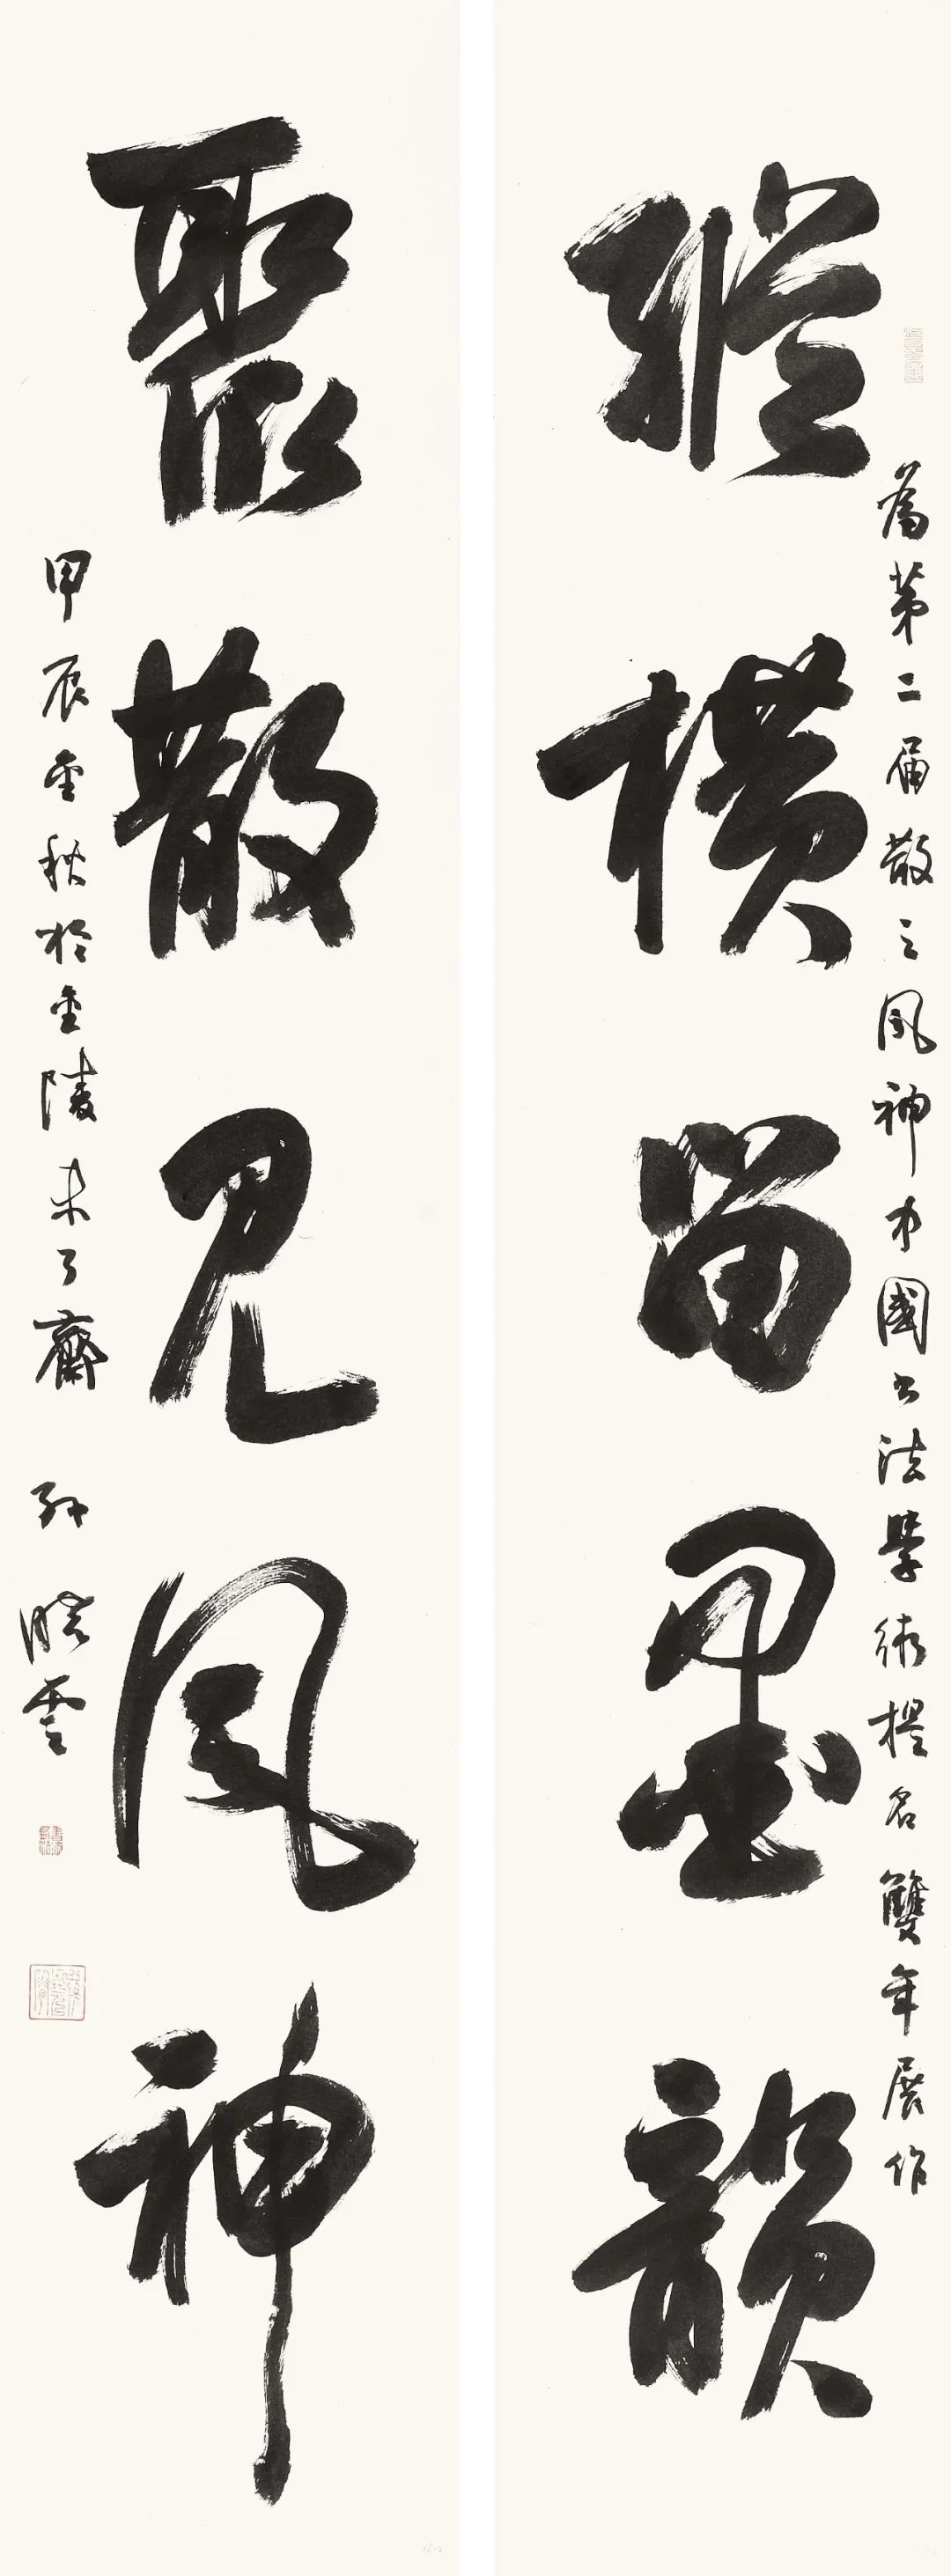 為第二届散之風神中國書法學術提名雙年展作
縱橫留墨韻
聚散見風神
甲辰金秋於金陵未了齋 孫曉雲